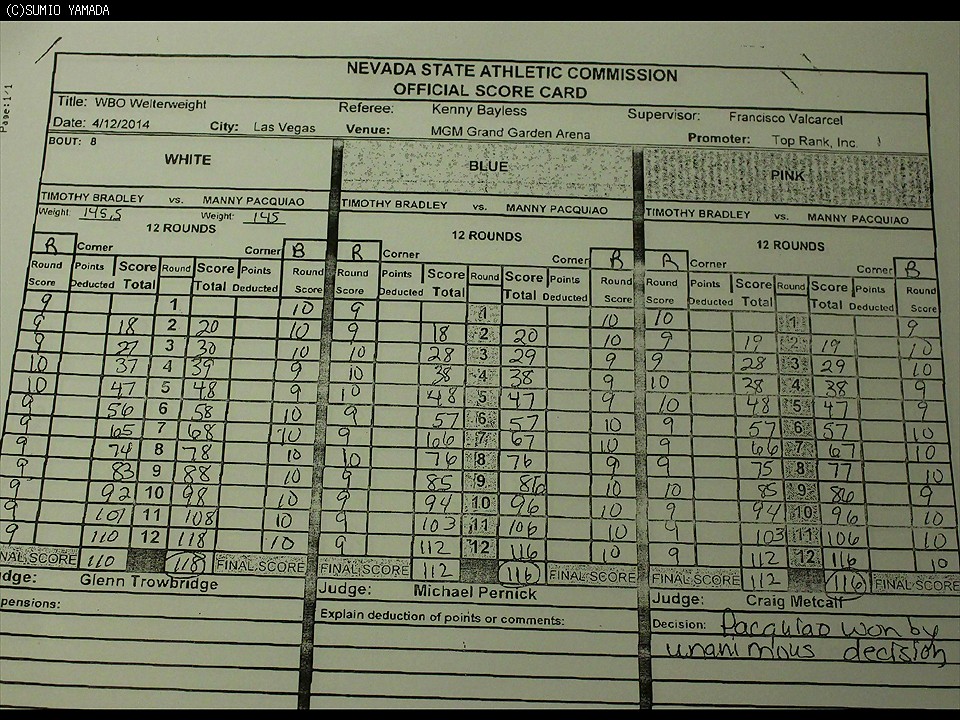 (C)SUMIO YAMADA
Page:1/1
NEVADA STATE ATHLETIC COMMISSION
OFFICIAL SCORE CARD
Title: WBO Welterweight Referee: Kenny Bayless Supervisor: Francisco Valcarcel
Date: 4/12/2014 City: Las Vegas Venue: MGM Grand Garden Arena Promoter: Top Rank, Inc.
BOUT: 8
WHITE BLUE PINK
TIMOTHY BRADLEY vs. MANNY PACQUIAO TIMOTHY BRADLEY vs. MANNY PACQUIAO TIMOTHY BRADLEY vs. MANNY PACQUIAO
Weight: 145.5 Weight: 145
12 ROUNDS 12 ROUNDS 12 ROUNDS
R Corner Corner B R Corner Corner B R Corner Corner B
Round Points Score Round Score Points Round Round Points Score Round Score Points Round Round Points Score Round Score Points Round
Score Deducted Total Total Deducted Score Score Deducted Total Total Deducted Score Score Deducted Total Total Deducted Score
9 1 10 9 1 10 10 1 9
9 18 2 20 10 9 18 2 20 10 9 19 2 19 10
9 27 3 30 10 10 28 3 29 9 9 28 3 29 10
10 37 4 39 9 10 38 4 38 9 10 38 4 38 9
10 47 5 48 9 10 48 5 47 9 10 48 5 47 9
9 56 6 58 10 9 57 6 57 10 9 57 6 57 10
9 65 7 68 10 9 66 7 67 10 9 66 7 67 10
9 74 8 78 10 10 76 8 76 9 9 75 8 77 10
9 83 9 88 10 9 85 9 86 10 10 85 9 86 9
9 92 10 98 10 9 94 10 96 10 9 94 10 96 10
9 101 11 108 10 9 103 11 106 10 9 103 11 106 10
9 110 12 118 10 9 112 12 116 10 9 112 12 116 10
NAL SCORE 110 118 FINAL SCORE FINAL SCORE 112 116 FINAL SCORE FINAL SCORE 112 116 FINAL SCORE
dge: Glenn Trowbridge Judge: Michael Pernick Judge: Craig Metcalf
pensions: Explain deduction of points or comments: Decision: Pacquiao won by
unanimous decision